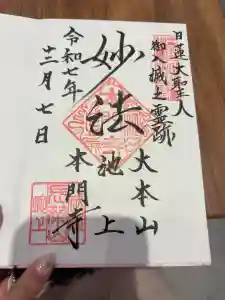 日蓮大聖人
御入滅之霊跡
大本山
池上
本門寺
妙法
令和七年
十二月七日